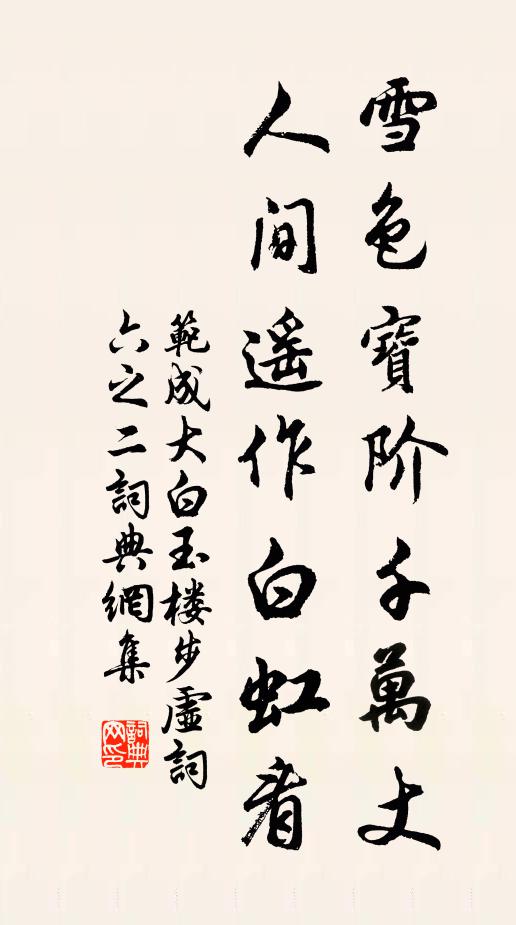 雪色寶阶千萬丈
人间遥作白虹看
範成大白玉楼步虛詞
六之二詞典網集
詞典网印